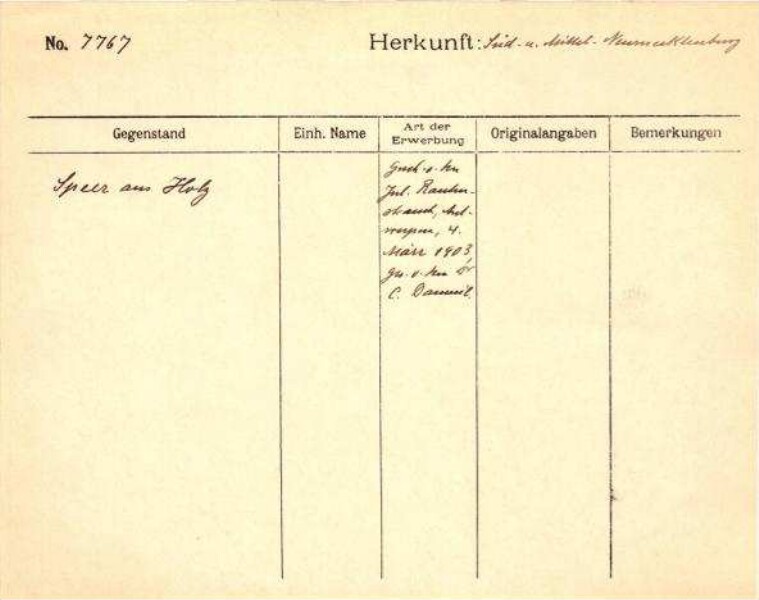 No. 7767
Herkunft: Süd- u. Mittel-Neumecklenburg
Gegenstand
Einh. Name
Art der
Erwerbung
Originalangaben
Bemerkungen
Speer aus Holz
Gesch. v. Hn
Jul. Rauten-
strauch, Ant-
werpen, 4.
März 1903,
ges. v. Hn Dr
C. Danneil.